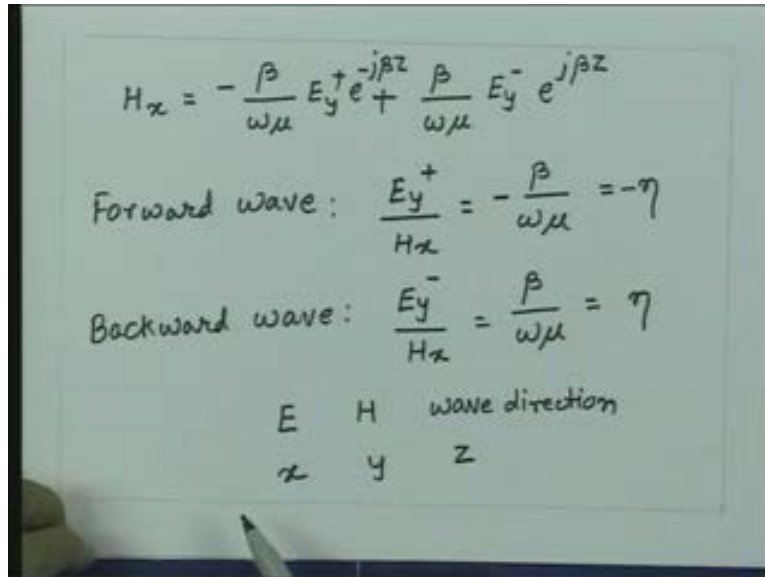 Hx = - β/ωμ Ey⁺ e^-jβz + β/ωμ Ey⁻ e^jβz
Forward wave: Ey⁺/Hx = - β/ωμ = -η
Backward wave: Ey⁻/Hx = β/ωμ = η
E H wave direction
x y z